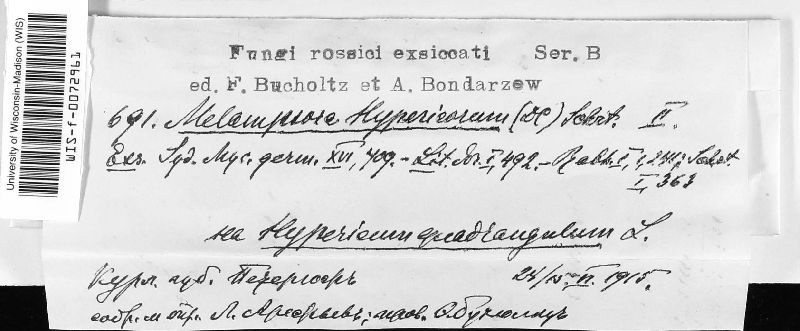 University of Wisconsin-Madison (WIS)
WIS-f-0072961
Fungi rossici exsiccati Ser. B
ed. F. Bucholtz et A. Bondarzew
691. Melampsora Hypericorum (DC) Schrt. II.
Exs. Syd. Myc. germ. XVI, 709. - Lit. Br. I, 492. - Rabh. I, 1, 241; Schrt.
I, 363
на Hypericum quadrangulum L.
Курл. губ. 24/ II. 1915.
собр. и опр. Л.